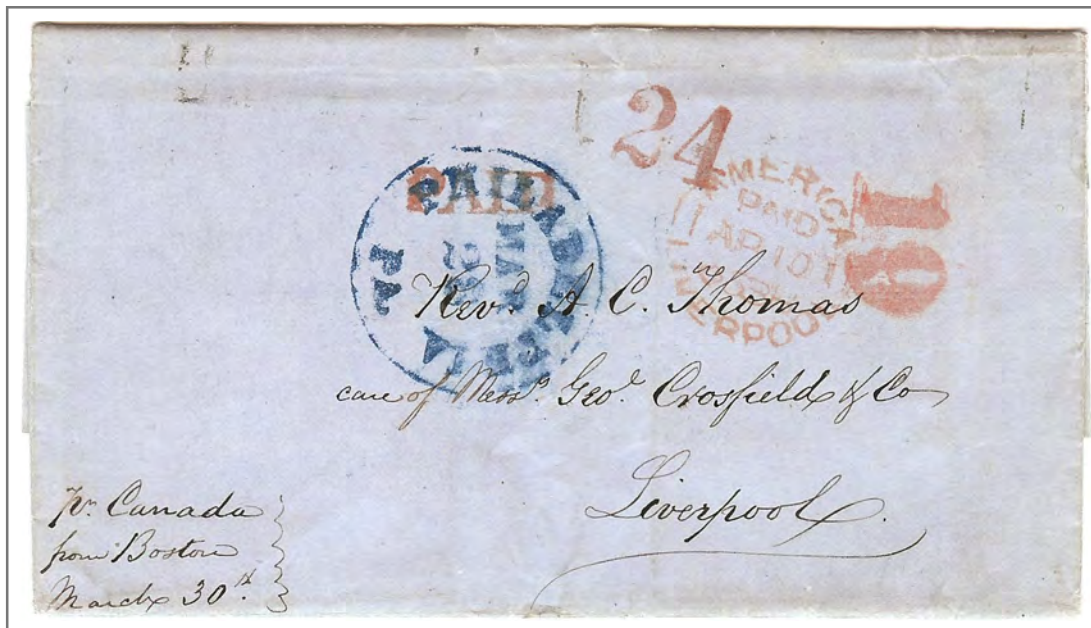 24
PAID
19
PHILADELPHIA
MAR
Pa.
AMERICA
PAID
AP 10
LIVERPOOL
Revd. A. C. Thomas
care of Messrs. Geo. Crosfield & Co
Liverpool.
pr. Canada
from Boston
March 30th.